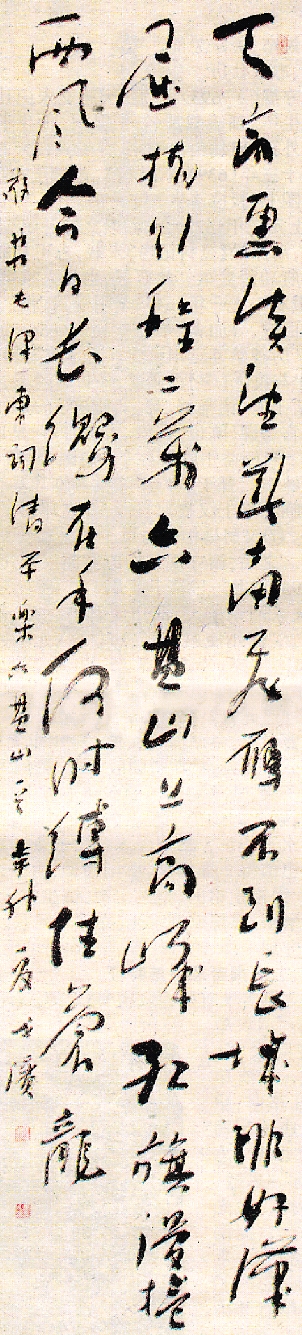 天高雲淡望斷南飛雁不到長城非好漢
屈指行程二萬六盤山上高峰紅旗漫捲
西風今日長纓在手何時縛住蒼龍
毛澤東詞清平樂六盤山